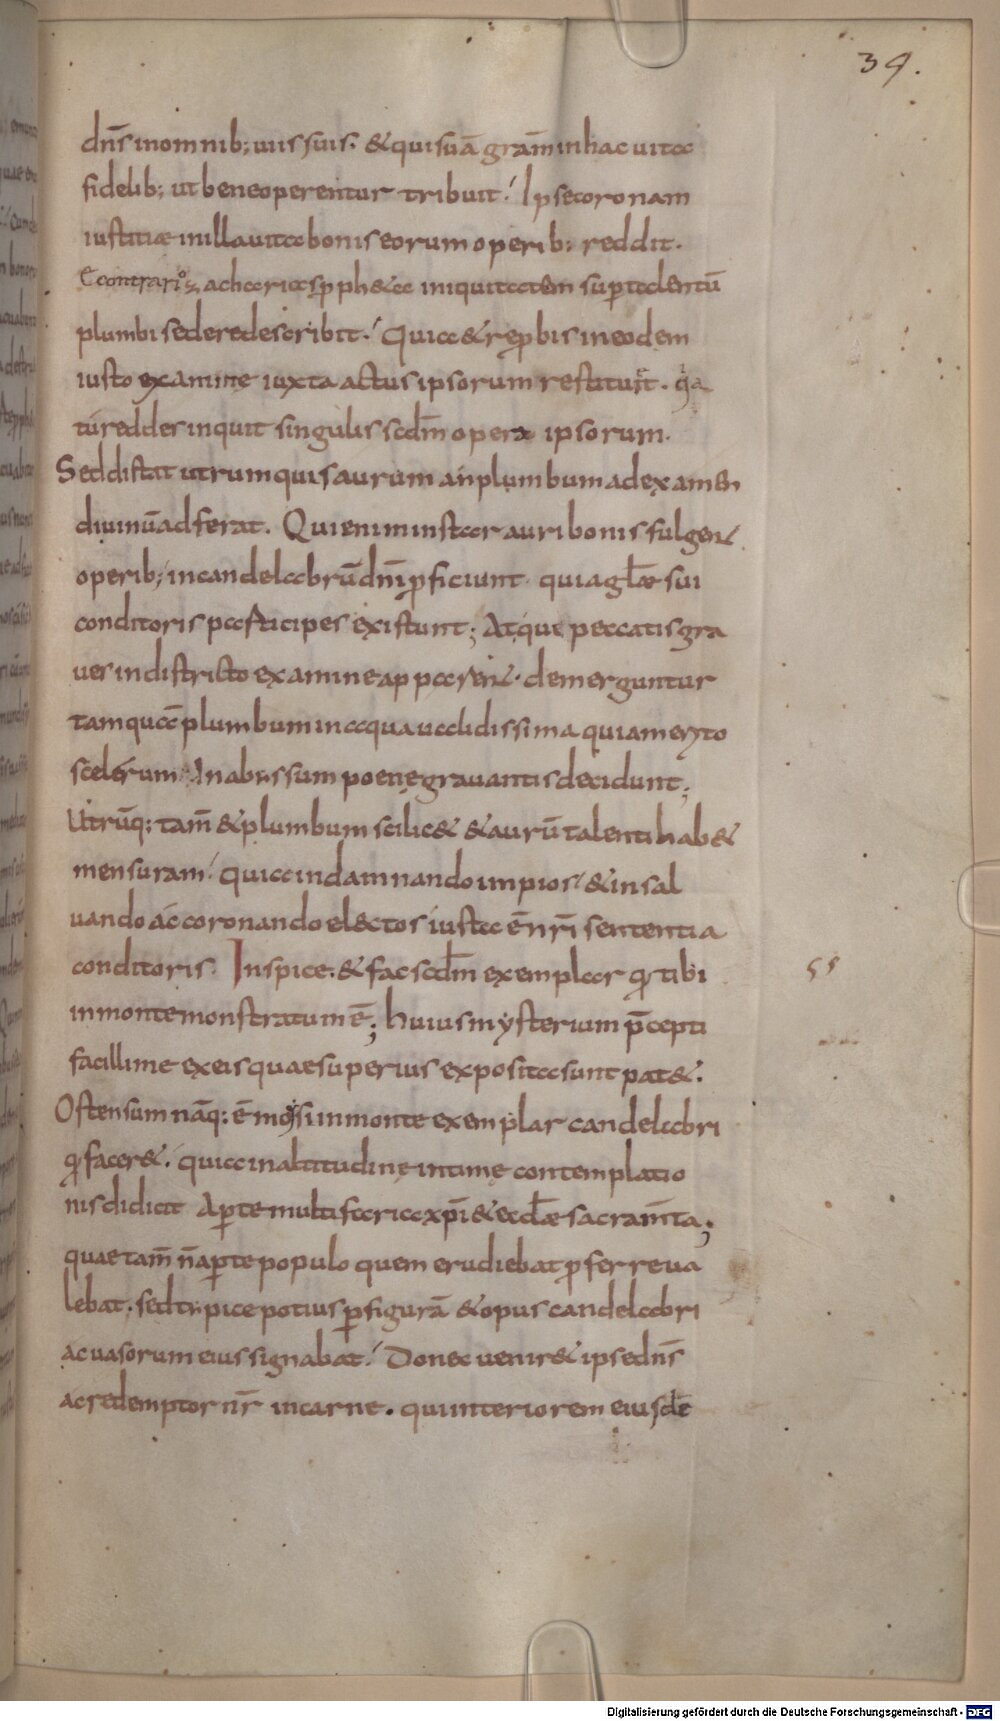 39.
dn̄s in omnib; uiis suis. & qui suā gratiā in hac uita
fidelib; ut bene operentur tribuit. Ipse coronam
iustitiæ in illa uita bonis eorum operib; reddit.
E contrario zacharias ꝓph&a iniquitatem sup talentū
plumbi sedere describit. Quia & reꝓbis in eodem
iusto examine iuxta actus ipsorum restituit. qa
tu redder inquit singulis scdm̄ opera ipsorum.
Sed distat utrum quis aurum an plumbum ad examen
diuinū adferat. Qui enim instar auri bonis fulgent
operib; in candelabrū dnī ꝓficiunt quia glæ sui
conditoris participes existunt; At qui peccatis gra
ues in districto examine apparent. demerguntur
tamquā plumbum in aqua ualidissima quia merito
scelerum in abissum poene grauantis decidunt;
Utrūq; tam̄ & plumbum scilic& & aurū talenti hab&
mensuram. quia in damnando impios. & in sal
uando ac coronando electos iusta ē nr̄i sententia
conditoris. Inspice. & fac scdm̄ exemplar qd tibi
in monte monstratum ē; huius mysterium p̄cepti
facillime ex eis quae superius exposita sunt pat&.
Ostensum nāq; ē moysi in monte exemplar candelabri
qd facer&. quia in altitudine intime contemplatio
nis didicit Aꝑte multifaria xp̄i & eccl̄æ sacram̄ta;
quae tam̄ n̄ aꝑte populo quem erudiebat ꝓferre ua
lebat. sed tipice potius ꝑ figurā & opus candelabri
ac uasorum eius signabat. Donec uenir& ipse dn̄s
ac redemptor nr̄ in carne. qui interiorem eiusdē
55
Digitalisierung gefördert durch die Deutsche Forschungsgemeinschaft - DFG